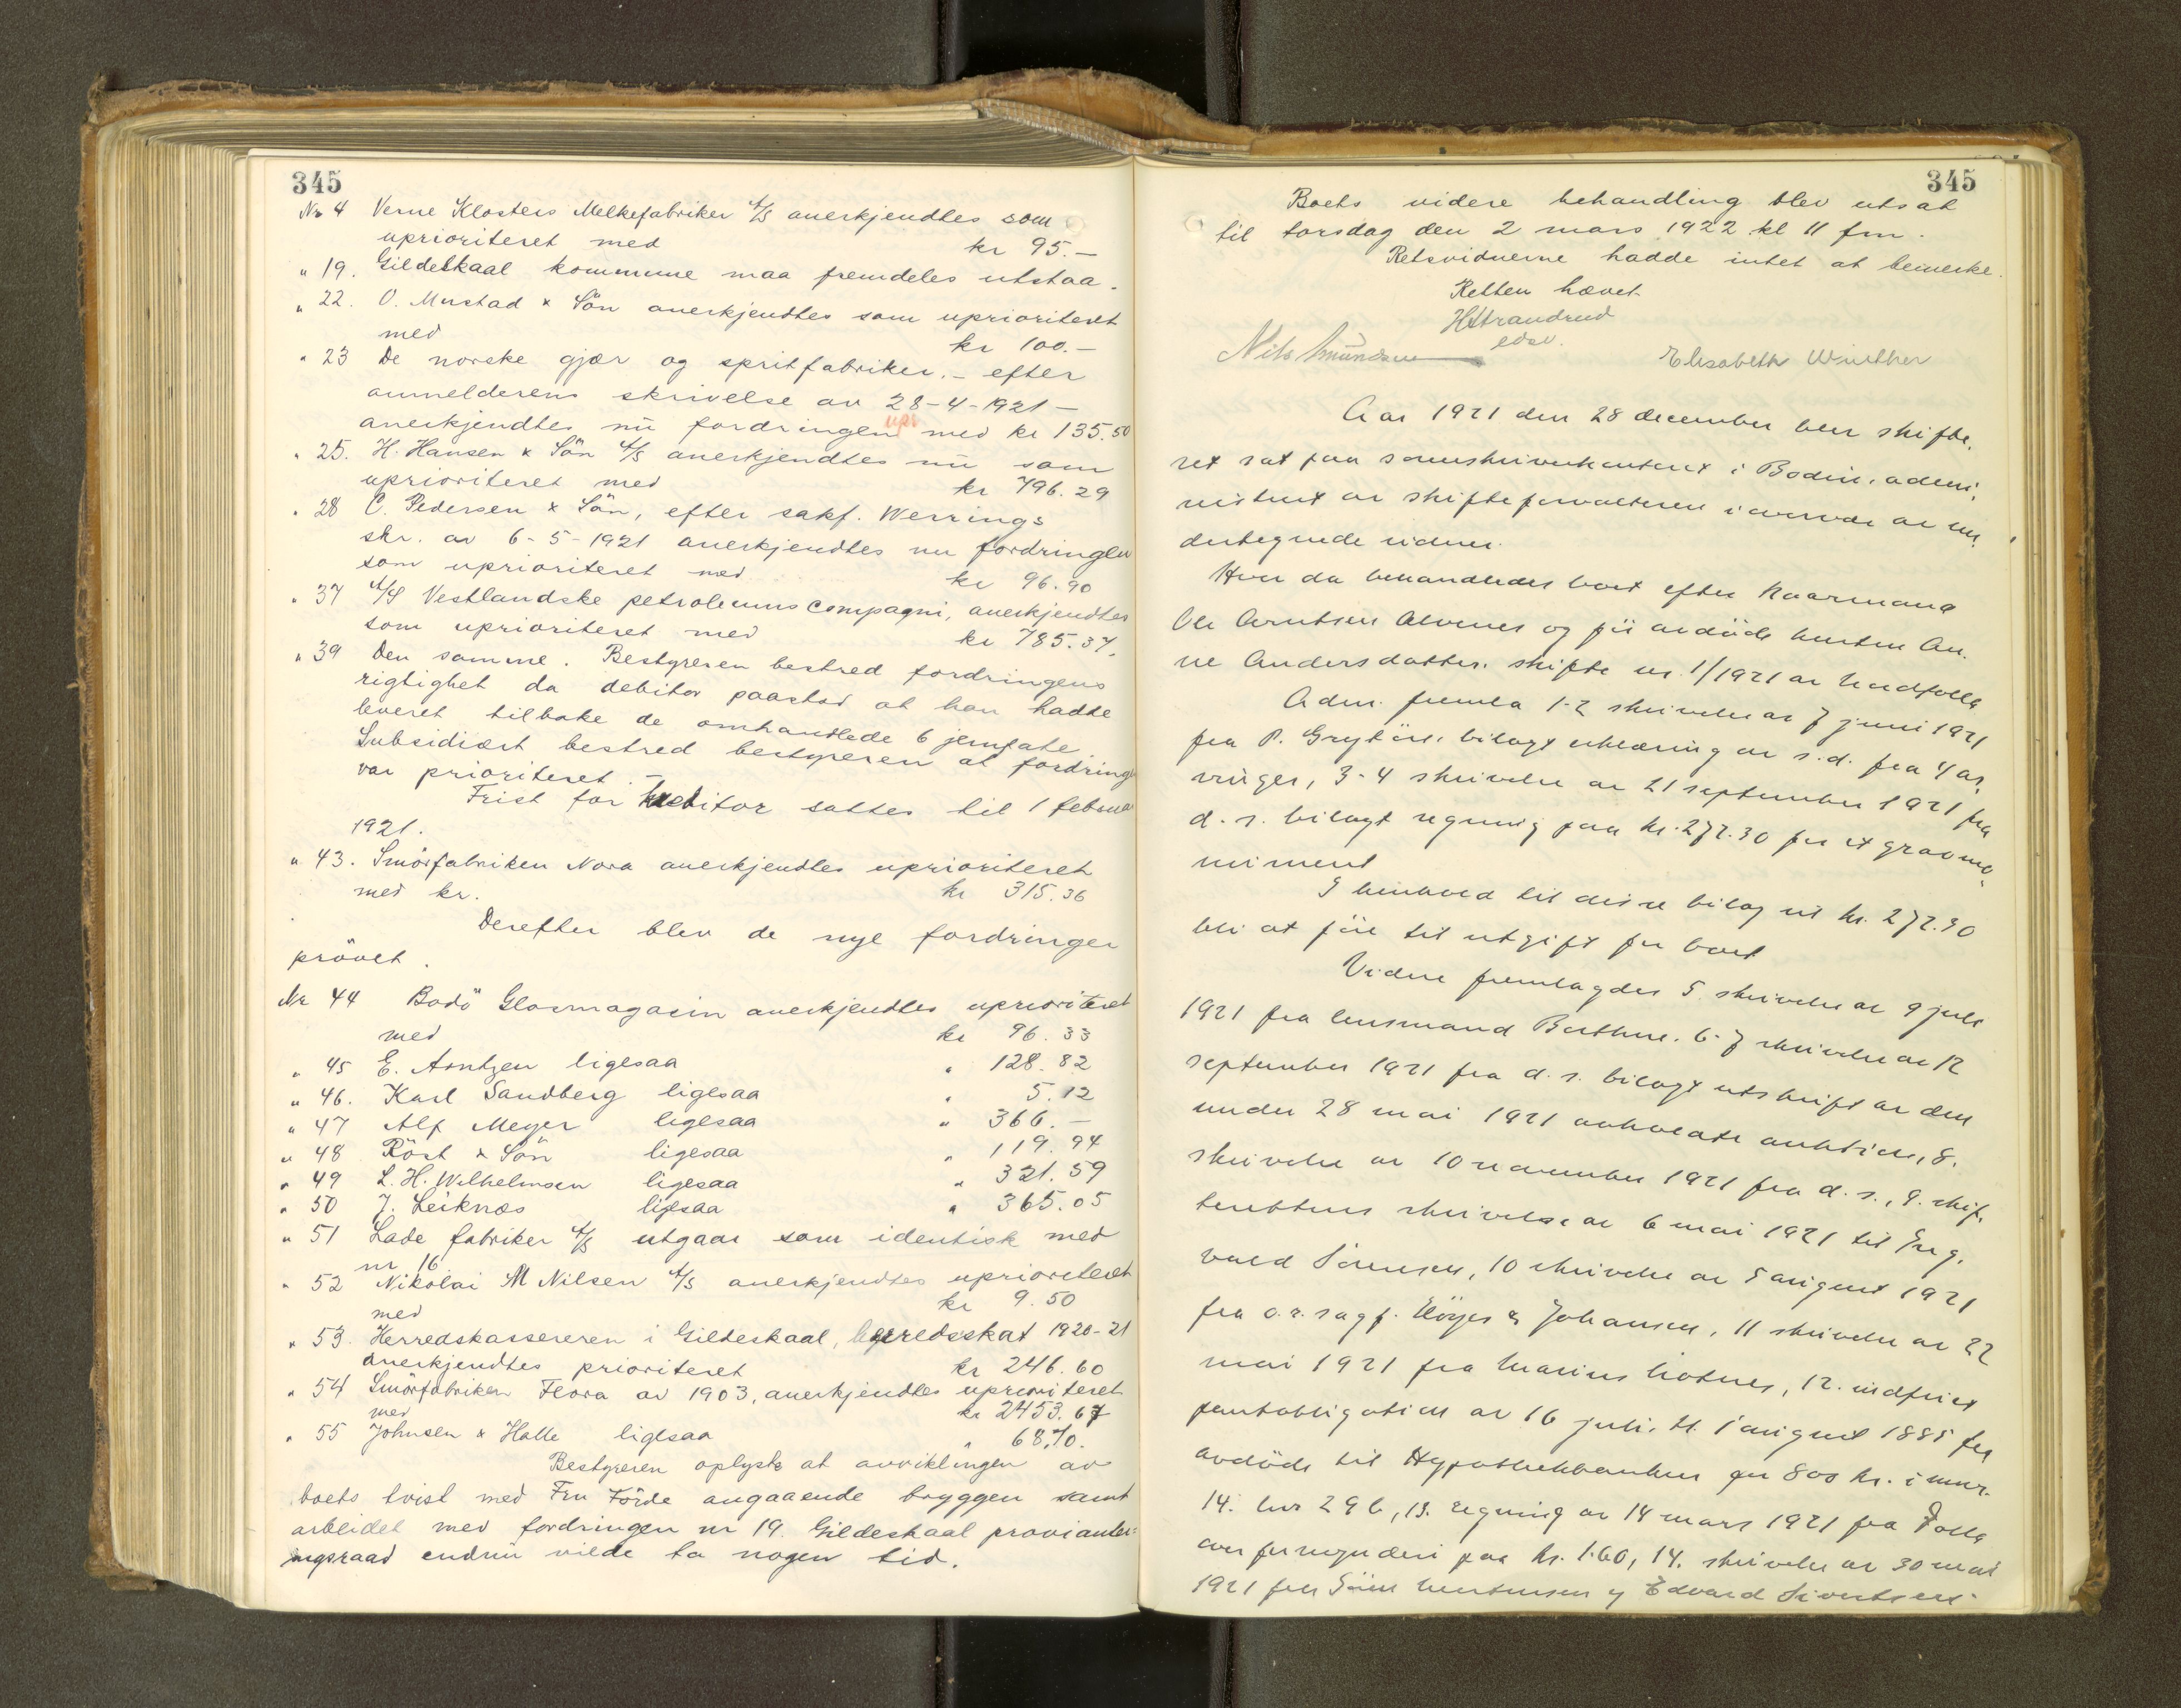 345
Nr 4 Verne Klosters Melkefabriker A/S anerkjendtes som
uprioriteret med kr 95.—
" 19. Gildeskaal kommune maa fremdeles utstaa.
" 22. O. Mustad & Sön anerkjendtes som uprioriteret
med kr 100.—
" 23 De norske gjær og spritfabriker. – efter
anmelderens skrivelse av 28-4-1921 –
anerkjendtes nu fordringen upr med kr 135.50
" 25. H. Hansen & Sön A/S anerkjendtes nu som
uprioriteret med kr 796.29
" 28 C. Pedersen & Sön, efter sakf. Werrings
skr. av 6-5-1921 anerkjendtes nu fordringen
som uprioriteret med kr 96.90
" 37 A/S Vestlandske petroleumscompagni, anerkjendtes
som uprioriteret med kr 785.37.
" 39 Den samme. Bestyreren bestred fordringens
rigtighet da debitor paastod at han hadde
leveret tilbake de omhandlede 6 jernfate.
Subsidiært bestred bestyreren at fordring
var prioriteret. –
Frist for kreditor sattes til 1 februar
1921.
" 43. Smörfabriken Nora anerkjendtes uprioriteret
med kr. kr 315.36
Derefter blev de nye fordringer
prövet.
Nr 44 Bodö Glasmagasin anerkjendtes uprioriteret
med kr 96.33
" 45 E. Arntzen ligesaa " 128.82
" 46. Karl Sandberg ligesaa " 5.12
" 47 Alf Meyer ligesaa " 366.—
" 48 Röst & Sön ligesaa " 119.94
" 49 L. H. Wilhelmsen ligesaa " 321.59
" 50 J. Leiknes ligesaa " 365.05
" 51 Lade fabriker A/S utgaar som identisk med
nr 16
" 52 Nikolai M Nilsen A/S anerkjendtes uprioriteret
med kr 9.50
" 53. Herredskassereren i Gildeskaal, herredsskat 1920-21
anerkjendtes prioriteret kr 246.60
" 54 Smörfabriken Flora av 1903, anerkjendtes uprioriteret
med kr 2453.67
" 55 Johnsen & Halle ligesaa " 68,70.
Bestyreren oplyste at avviklingen av
boets tvist med Fru Förde angaaende bryggen samt
arbeidet med fordringen nr 19. Gildeskaal provianter-
ingsraad endnu vilde ta nogen tid.
345
Boets videre behandling blev utsat
til torsdag den 2 mars 1922 kl 11 fm.
Retsvidnerne hadde intet at bemerke.
Retten hævet.
HStrandrud
edsv.
Nils Amundsen Elisabeth Winther
Aar 1921 den 28 december blev skifte-
ret sat paa sorenskriverkontoret i Bodin, admi-
nistrert av skifteforvalteren i overvær av un-
dertegnede vidner.
Hvor da behandledes boet efter kaarmand
Ole Arntsen Alvenes og för avdöde hustru An-
ne Andersdatter. skifte nr. 1/1921 av Nordfolla
Adm. fremla 1-2 skrivelse av 7 juni 1921
fra P. Grytöir, bilagt erklæring av s.d. fra 4 ar-
vinger, 3-4 skrivelse av 21 september 1921 fra
d. s. bilagt regning paa kr. 272.30 for et gravmo-
nument
I henhold til disse bilag vil kr. 272.30
bli at före til utgift for boet
Videre fremlagdes 5. skrivelse av 9 juli
1921 fra lensmand Berthus. 6-7 skrivelse av 12
september 1921 fra d. s. bilagt utskrift av den
under 28 mai 1921 avholdte auktion, 8.
skrivelse av 10 november 1921 fra d. s., 9. skif-
terettens skrivelse av 6 mai 1921 til Ing-
vald Sörensen, 10 skrivelse av 5 august 1921
fra o.r. sagf. Höyer & Johansen, 11 skrivelse av 22
mai 1921 fra Marius Hotnes, 12. indfriet
pantobligation av 16 juli, tl. 1 august 1885 fra
avdöde til Hypothekbanken for 800 kr. i mnr.
14. lnr 29 b, 13. regning av 14 mars 1921 fra Folla
overformynderi paa kr. 1.60, 14. skrivelse av 30 mai
1921 fra Sören Mortensen og Edvard Sivertsen